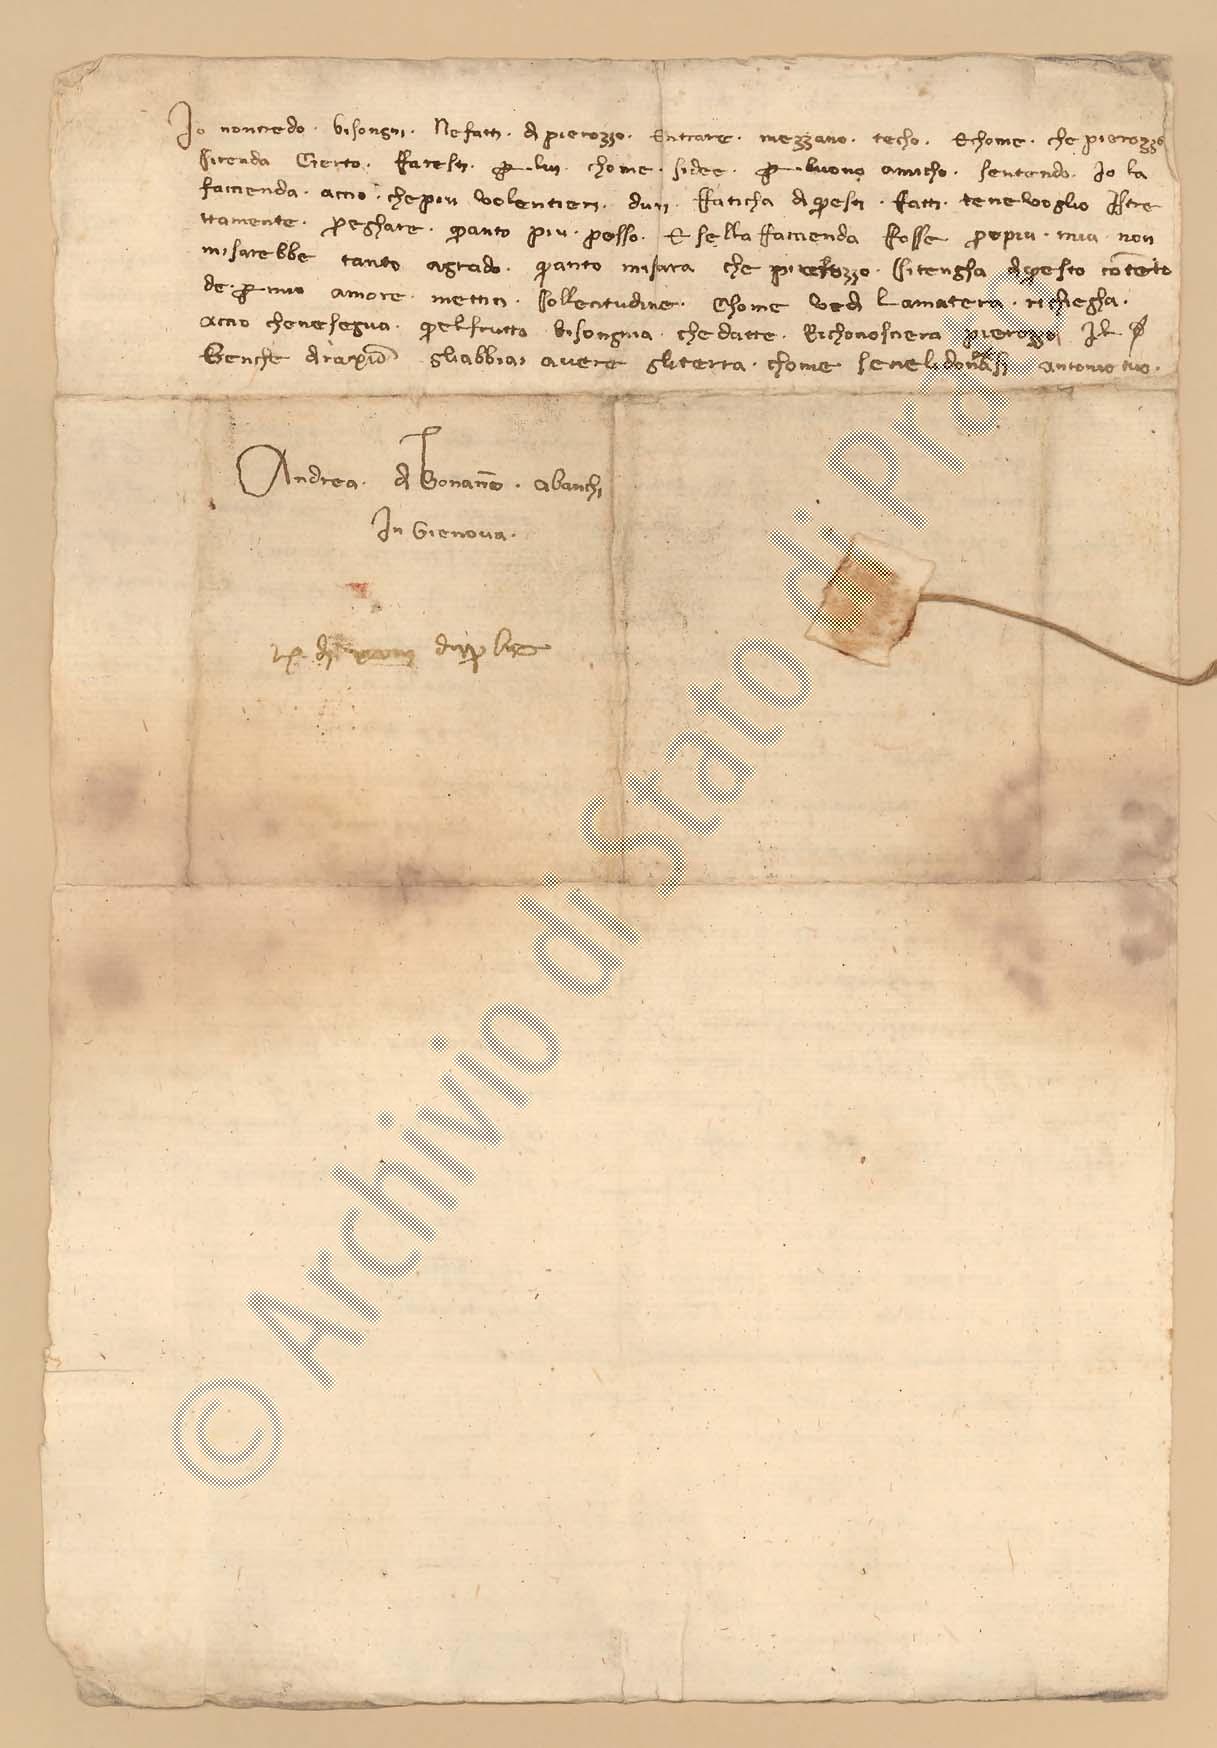 Io noncredo · bisongni · Ne fatti · di pierozzo · Entrare · mezzano · techo · Echome · che pierozzo
sirenda Cierto · Faresti · per lui · chome · sidee · per buono amicho · sentendo · Io la
faccienda · accio · chepiu volentieri · duri · Faticha di questi · Fatti · tenevoglio Istre
ttamente · preghare · quanto piu · posso · E sella Faccienda Fosse propia · mia · non
misarebbe tanto agrado · quanto misara che pierozzo · sitengha diquesto contento
de · per mio amore · mettici · sollecitudine · Chome vedi Lamatera · richiegha ·
accio chenesegua · quelfrutto bisongnia · chedatte · Richonosciera pierozzo
benche gliabbiai avere gliterra · chome senelidonassi Antonio tuo ·
Andrea · di Bonanno · abanchi
In Gienova ·
© Archivio di Stato di Prato